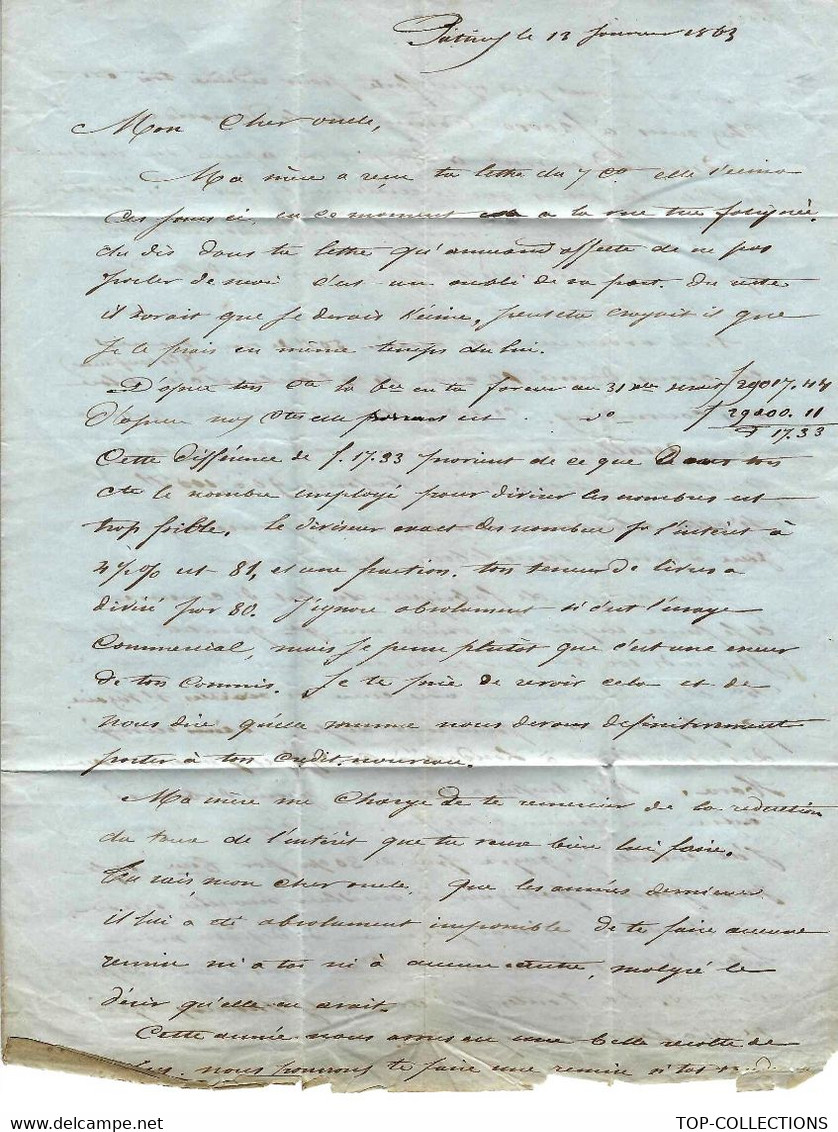 le 13 Janvier 1863
Mon Cher oncle,
Ma mère a reçu ta lettre du 7 Ct. elle t'écrira
ces jours ci, en ce moment a la vue très fatiguée.
du dis dans ta lettre qu'armand affecte de ne pas
parler de moi c'est un oubli de sa part. Du reste
il savait que je devais t'écrire, peut etre croyait il que
Je le frais en même temps de lui.
D'après ton Cte la bce en ta faveur au 31 Xbre serait f 29017.44
D'après nos Ctes elle est do f 29000.11
f 17.33
Cette différence de f. 17.33 provient de ce que Dans ton
cte le nombre employé pour diviser les nombres est
trop faible. Le diviseur exact des nombres pr l'intérêt à
4½% est 81, et une fraction, ton teneur de livres a
divisé par 80. J'ignore absolument si c'est l'usage
Commercial, mais je pense plutot que c'est une erreur
de ton Commis. Je te prie de revoir cela et de
nous dire qu'elle somme nous devons définitivement
porter à ton crédit nouveau.
Ma mère me charge de te remercier de la réduction
du taux de l'intérêt que tu veux bien lui faire.
Tu sais, mon cher oncle, que les années dernieres
il lui a été absolument impossible de te faire aucune
remise ni a toi ni à aucun autre, malgré le
désir qu'elle en avait.
Cette année nous avons eu une belle recolte de
nous pourrons te faire une remise si tot
TOP-COLLECTIONS